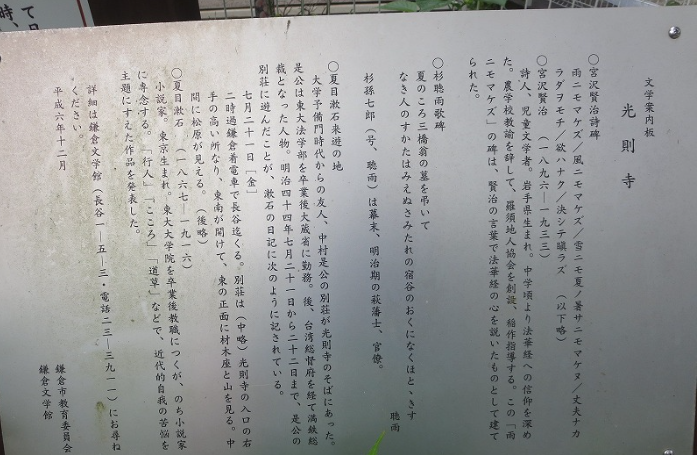 文学案内板
光則寺
○宮沢賢治詩碑
雨ニモマケズ／風ニモマケズ／雪ニモ夏ノ暑サニモマケヌ／丈夫ナカ
ラダヲモチ／欲ハナク／決シテ瞋ラズ　（以下略）
○宮沢賢治　（一八九六―一九三三）
詩人、児童文学者。岩手県生まれ。中学頃より法華経への信仰を深め
た。農学校教諭を辞して、羅須地人協会を創設、稲作指導する。この「雨
ニモマケズ」の碑は、賢治の言葉で法華経の心を説いたものとして建て
られた。
○杉聴雨歌碑
夏のころ三橋翁の墓を弔いて
なき人のすかたはみえぬさみたれの宿谷のおくになくほとゝきす
聴雨
杉孫七郎（号、聴雨）は幕末、明治期の萩藩士、官僚。
○夏目漱石来遊の地
大学予備門時代からの友人、中村是公の別荘が光則寺のそばにあった。
是公は東大法学部を卒業後大蔵省に勤務。後、台湾総督府を経て満鉄総
裁となった人物。明治四十四年七月二十一日から二十二日まで、是公の
別荘に遊んだことが、漱石の日記に次のように記されている。
七月二十一日「金」
二時過鎌倉着電車で長谷迄くる。別荘は（中略）光則寺の入口の右
手の高い所なり、東南が開けて、東の正面に材木座と山を見る。中
間に松原が見える。（後略）
○夏目漱石　（一八六七―一九一六）
小説家。東京生まれ。東大大学院を卒業後教職につくが、のち小説家
に専念する。「行人」「こころ」「道草」などで、近代的自我の苦悩を
主題にすえた作品を発表した。
詳細は鎌倉文学館（長谷一―五―三・電話二三―三九一一）にお尋ね
ください。
平成六年十二月
鎌倉市教育委員会
鎌倉文学館